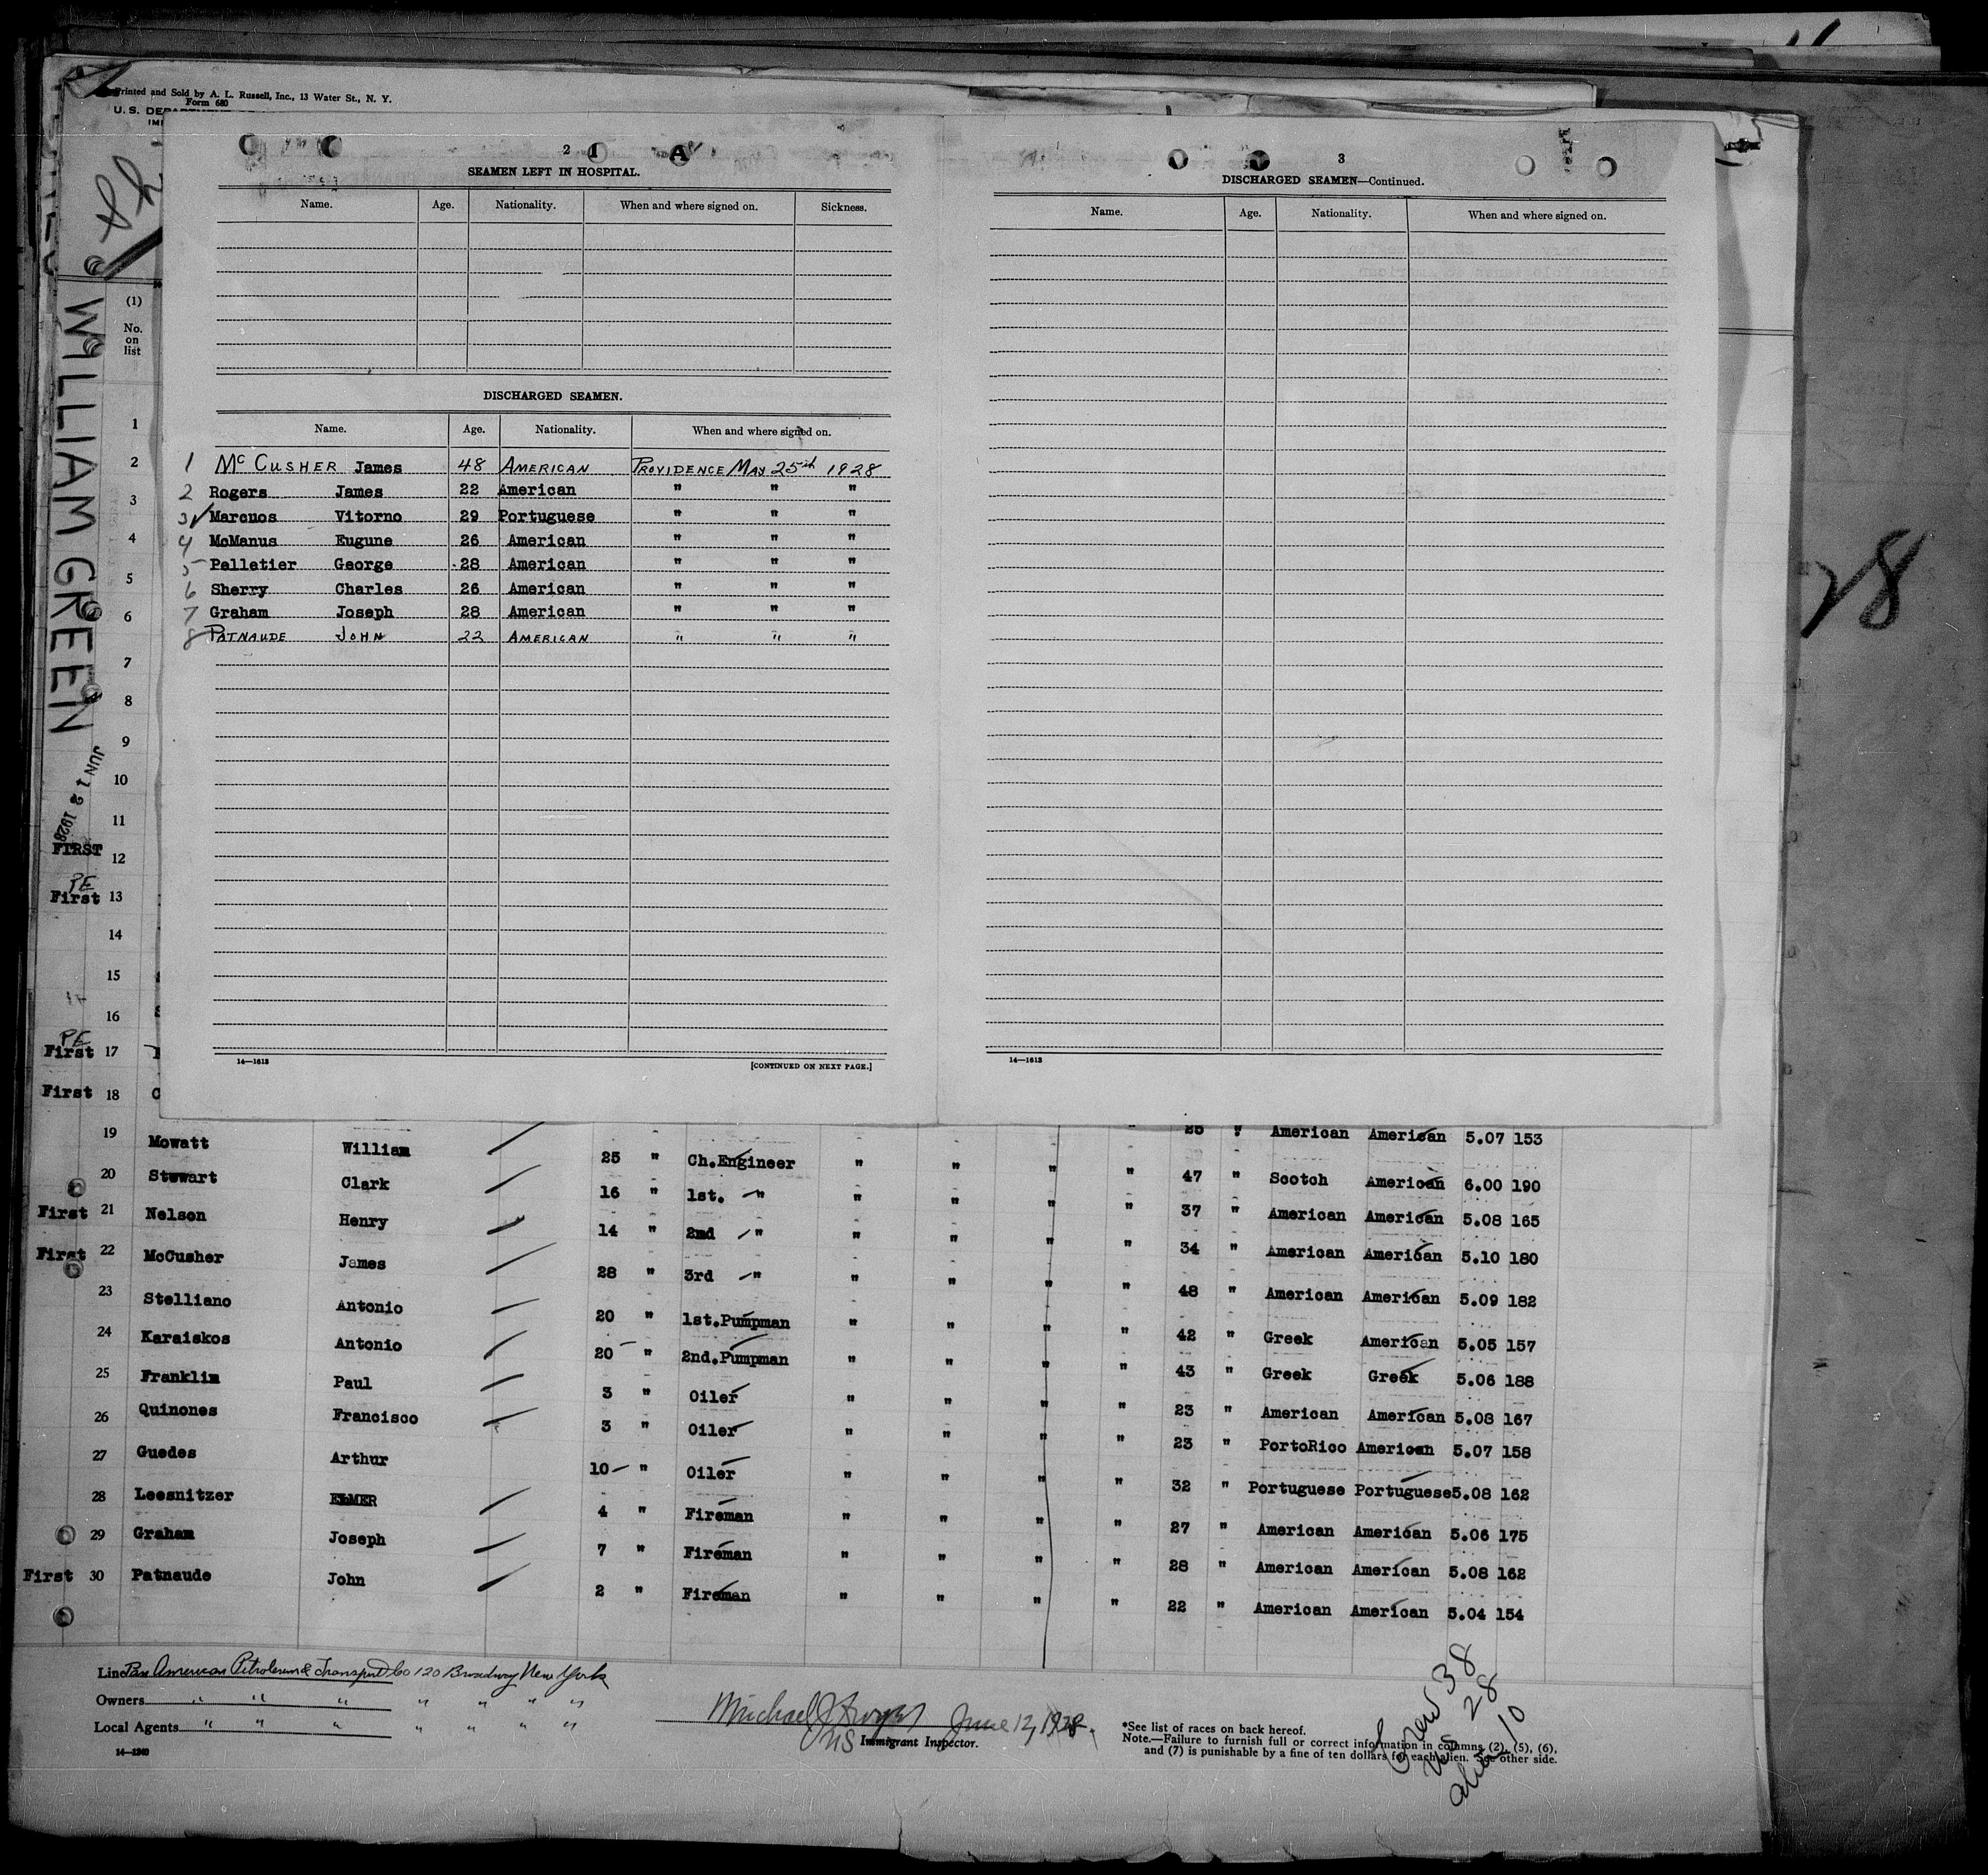 Printed and Sold by A. L. Russell, Inc., 13 Water St., N. Y.
Form 680
U. S.
WILLIAM GREEN
JUN 12 1928
2
SEAMEN LEFT IN HOSPITAL.
Name. Age. Nationality. When and where signed on. Sickness.
DISCHARGED SEAMEN.
Name. Age. Nationality. When and where signed on.
1 McCUSHER James 48 AMERICAN PROVIDENCE MAY 25th 1928
2 Rogers James 22 American " " "
3 Marcuos Vitorno 29 Portuguese " " "
4 McManus Eugune 26 American " " "
5 Pelletier George 28 American " " "
6 Sherry Charles 26 American " " "
7 Graham Joseph 28 American " " "
8 PATNAUDE JOHN 22 AMERICAN " " "
14—1613
[CONTINUED ON NEXT PAGE.]
3
DISCHARGED SEAMEN—Continued.
Name. Age. Nationality. When and where signed on.
14—1613
28
(1)
No.
on
list
1
2
3
4
5
6
7
8
9
10
11
FIRST 12
PE
First 13
14
15
16
PE
First 17
First 18
19 Mowatt William 25 " Ch.Engineer " " " " 47 " Scotch American 6.00 190
20 Stewart Clark 16 " 1st. " " " " " 37 " American American 5.08 165
First 21 Nelson Henry 14 " 2nd " " " " " 34 " American American 5.10 180
First 22 McCusher James 28 " 3rd " " " " " 48 " American American 5.09 182
23 Stelliano Antonio 20 " 1st.Pumpman " " " " 42 " Greek American 5.05 157
24 Karaiskos Antonio 20 " 2nd.Pumpman " " " " 43 " Greek Greek 5.06 188
25 Franklin Paul 3 " Oiler " " " " 23 " American American 5.08 167
26 Quinones Francisco 3 " Oiler " " " " 23 " PortoRico American 5.07 158
27 Guedes Arthur 10 " Oiler " " " " 32 " Portuguese Portuguese 5.08 162
28 Leesnitzer ELMER 4 " Fireman " " " " 27 " American American 5.06 175
29 Graham Joseph 7 " Fireman " " " " 28 " American American 5.08 162
First 30 Patnaude John 2 " Fireman " " " " 22 " American American 5.04 154
" American American 5.07 153
Line Pan American Petroleum & Transport Co 120 Broadway New York
Owners " " " " " " "
Local Agents " " " " " " "
14—1240
Michael J June 12, 1928.
US Immigrant Inspector.
*See list of races on back hereof.
Note.—Failure to furnish full or correct information in columns (2), (5), (6),
and (7) is punishable by a fine of ten dollars for each alien. See other side.
Crew 38
US 28
alien 10